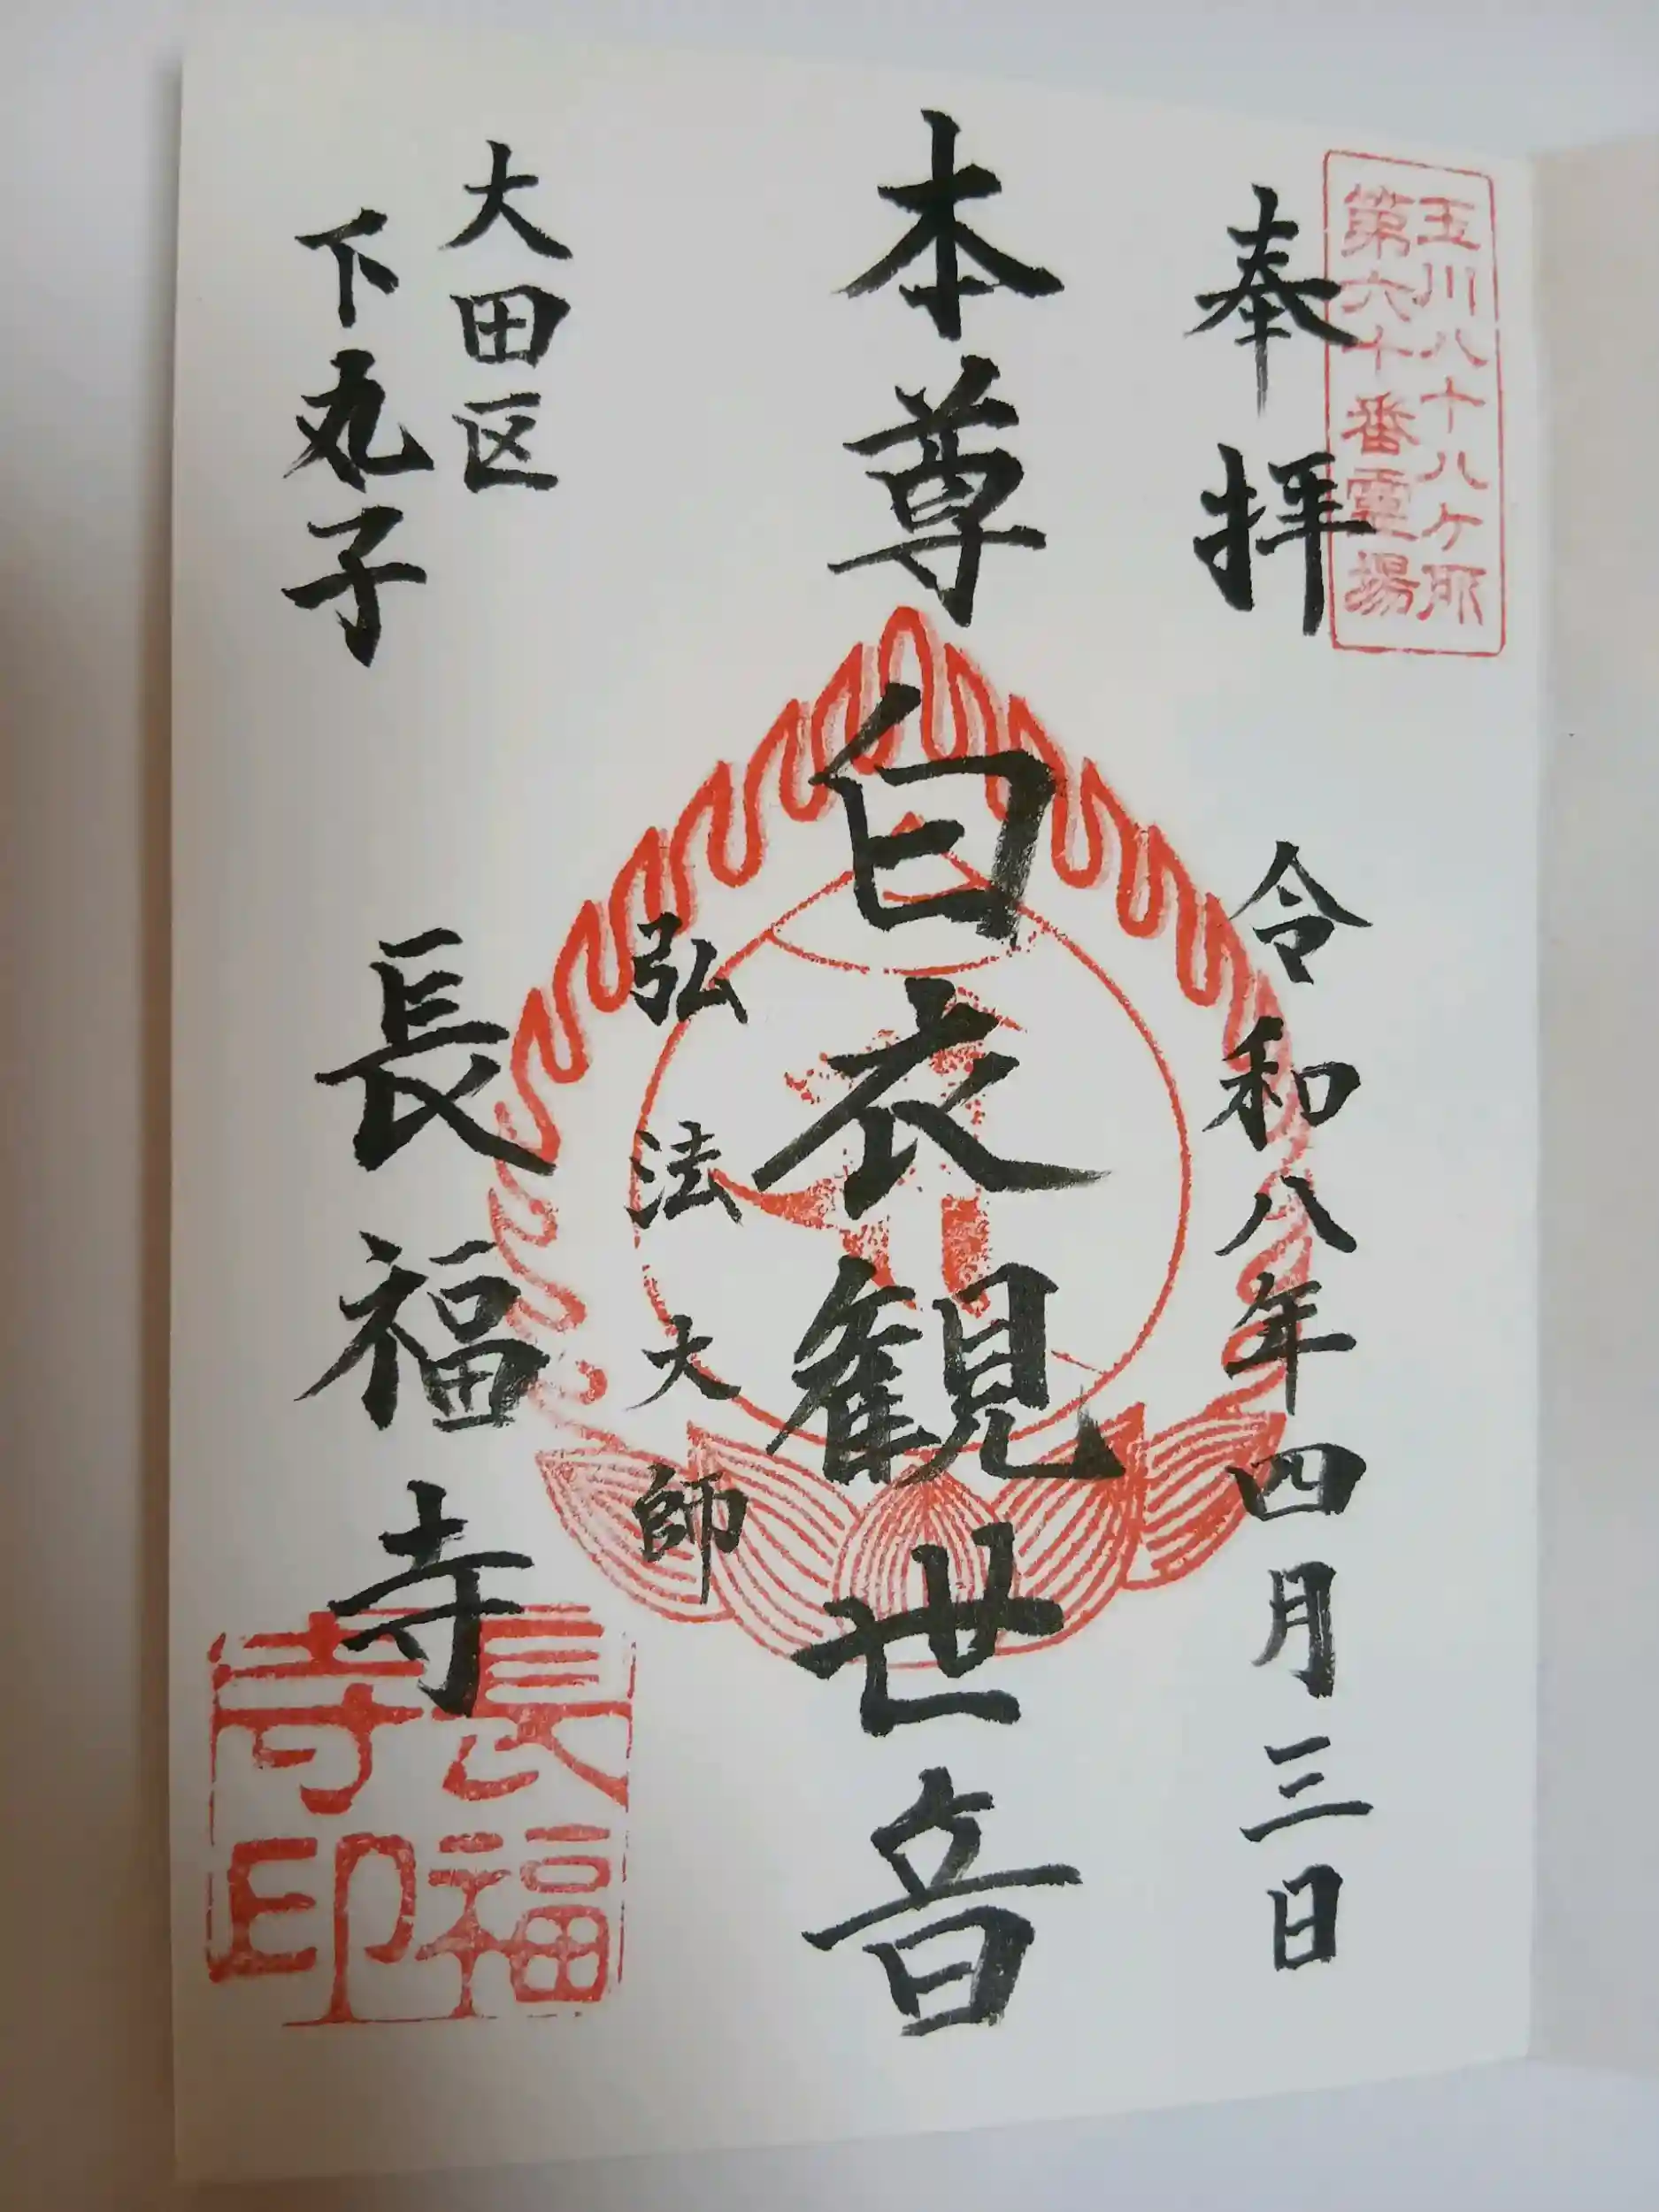 玉川八十八ケ所
第六十番霊場
奉拝 令和八年四月三日
本尊 白衣観世音
弘法大師
大田区
下丸子
長福寺
長福
寺印